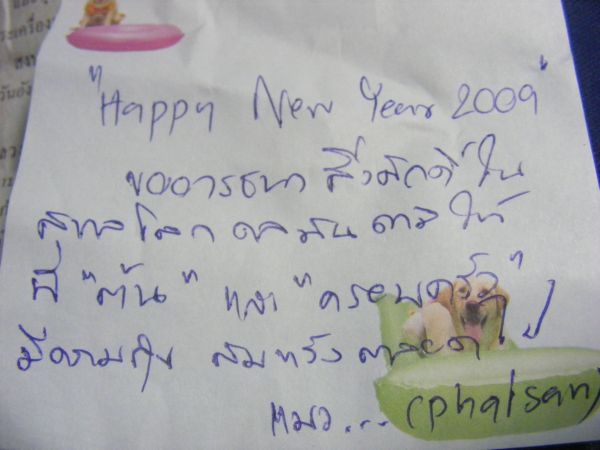 "Happy New Year 2009"
ขออารธนา สิ่งศักดิ์ ใน
สากลโลก ดลบันดาล ให้
พี่ "ต้น" และ "ครอบครัว"
มีความสุข สมหวัง ตลอด
แมว... (phalsan)